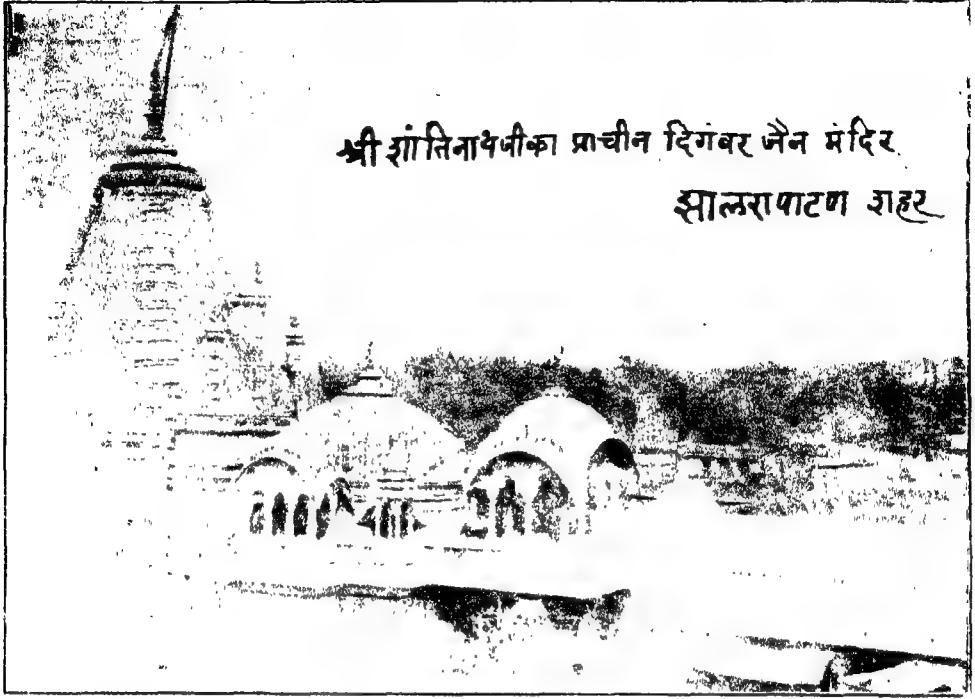 श्री शांतिनाथजीका प्राचीन दिगंबर जैन मंदिर
झालरापाटण शहर